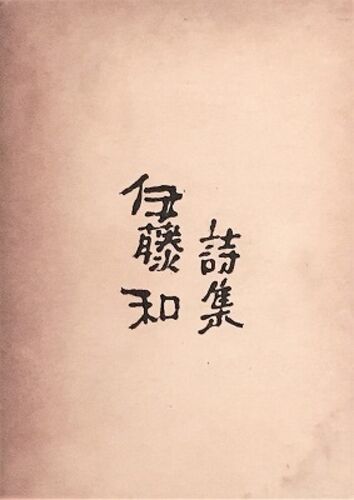 伊藤和
詩集